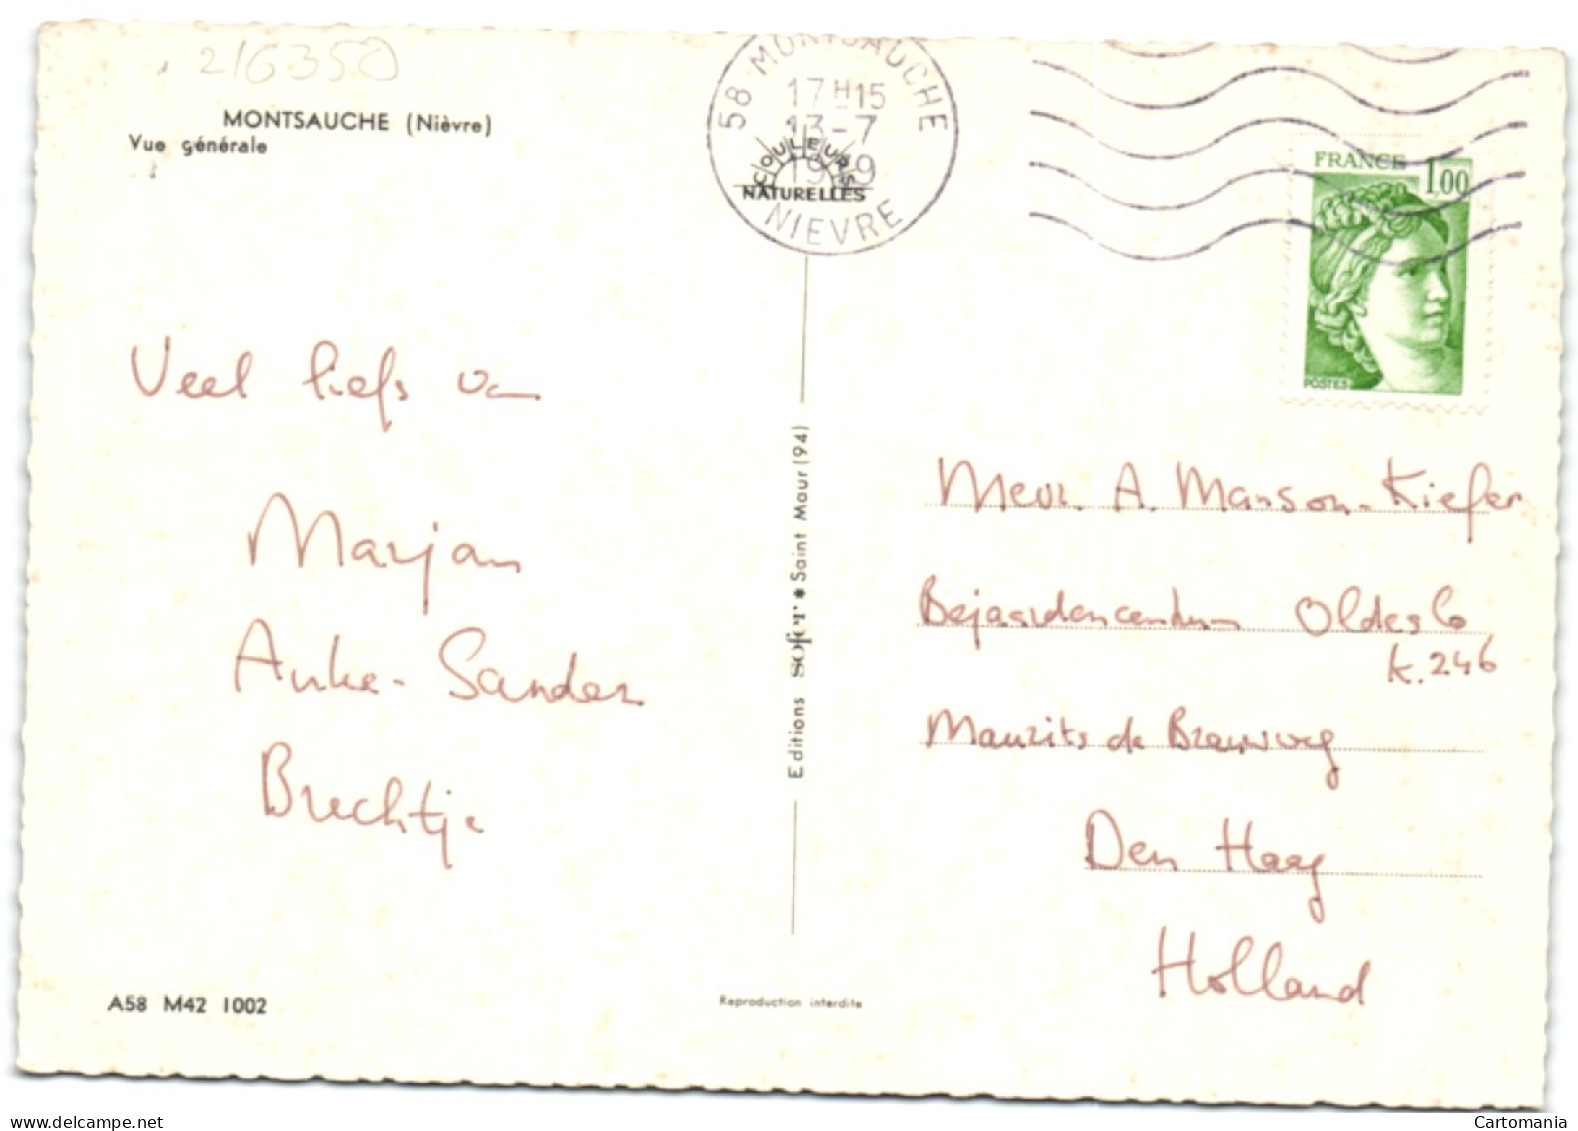 216350
MONTSAUCHE (Nièvre)
Vue générale
58 MONTSAUCHE
17H15
13-7
1979
NIEVRE
COULEURS
NATURELLES
FRANCE 1,00
POSTES
Veel liefs van
Marjan
Anke-Sander
Brechtje
Editions sofer * Saint Maur (94)
Mevr. A. Manson-Kiefer
Bejaardencentrum Oldeslo
k.246
Maurits de Brauwweg
Den Haag
Holland
A58 M42 1002
Reproduction interdite
Cartomania